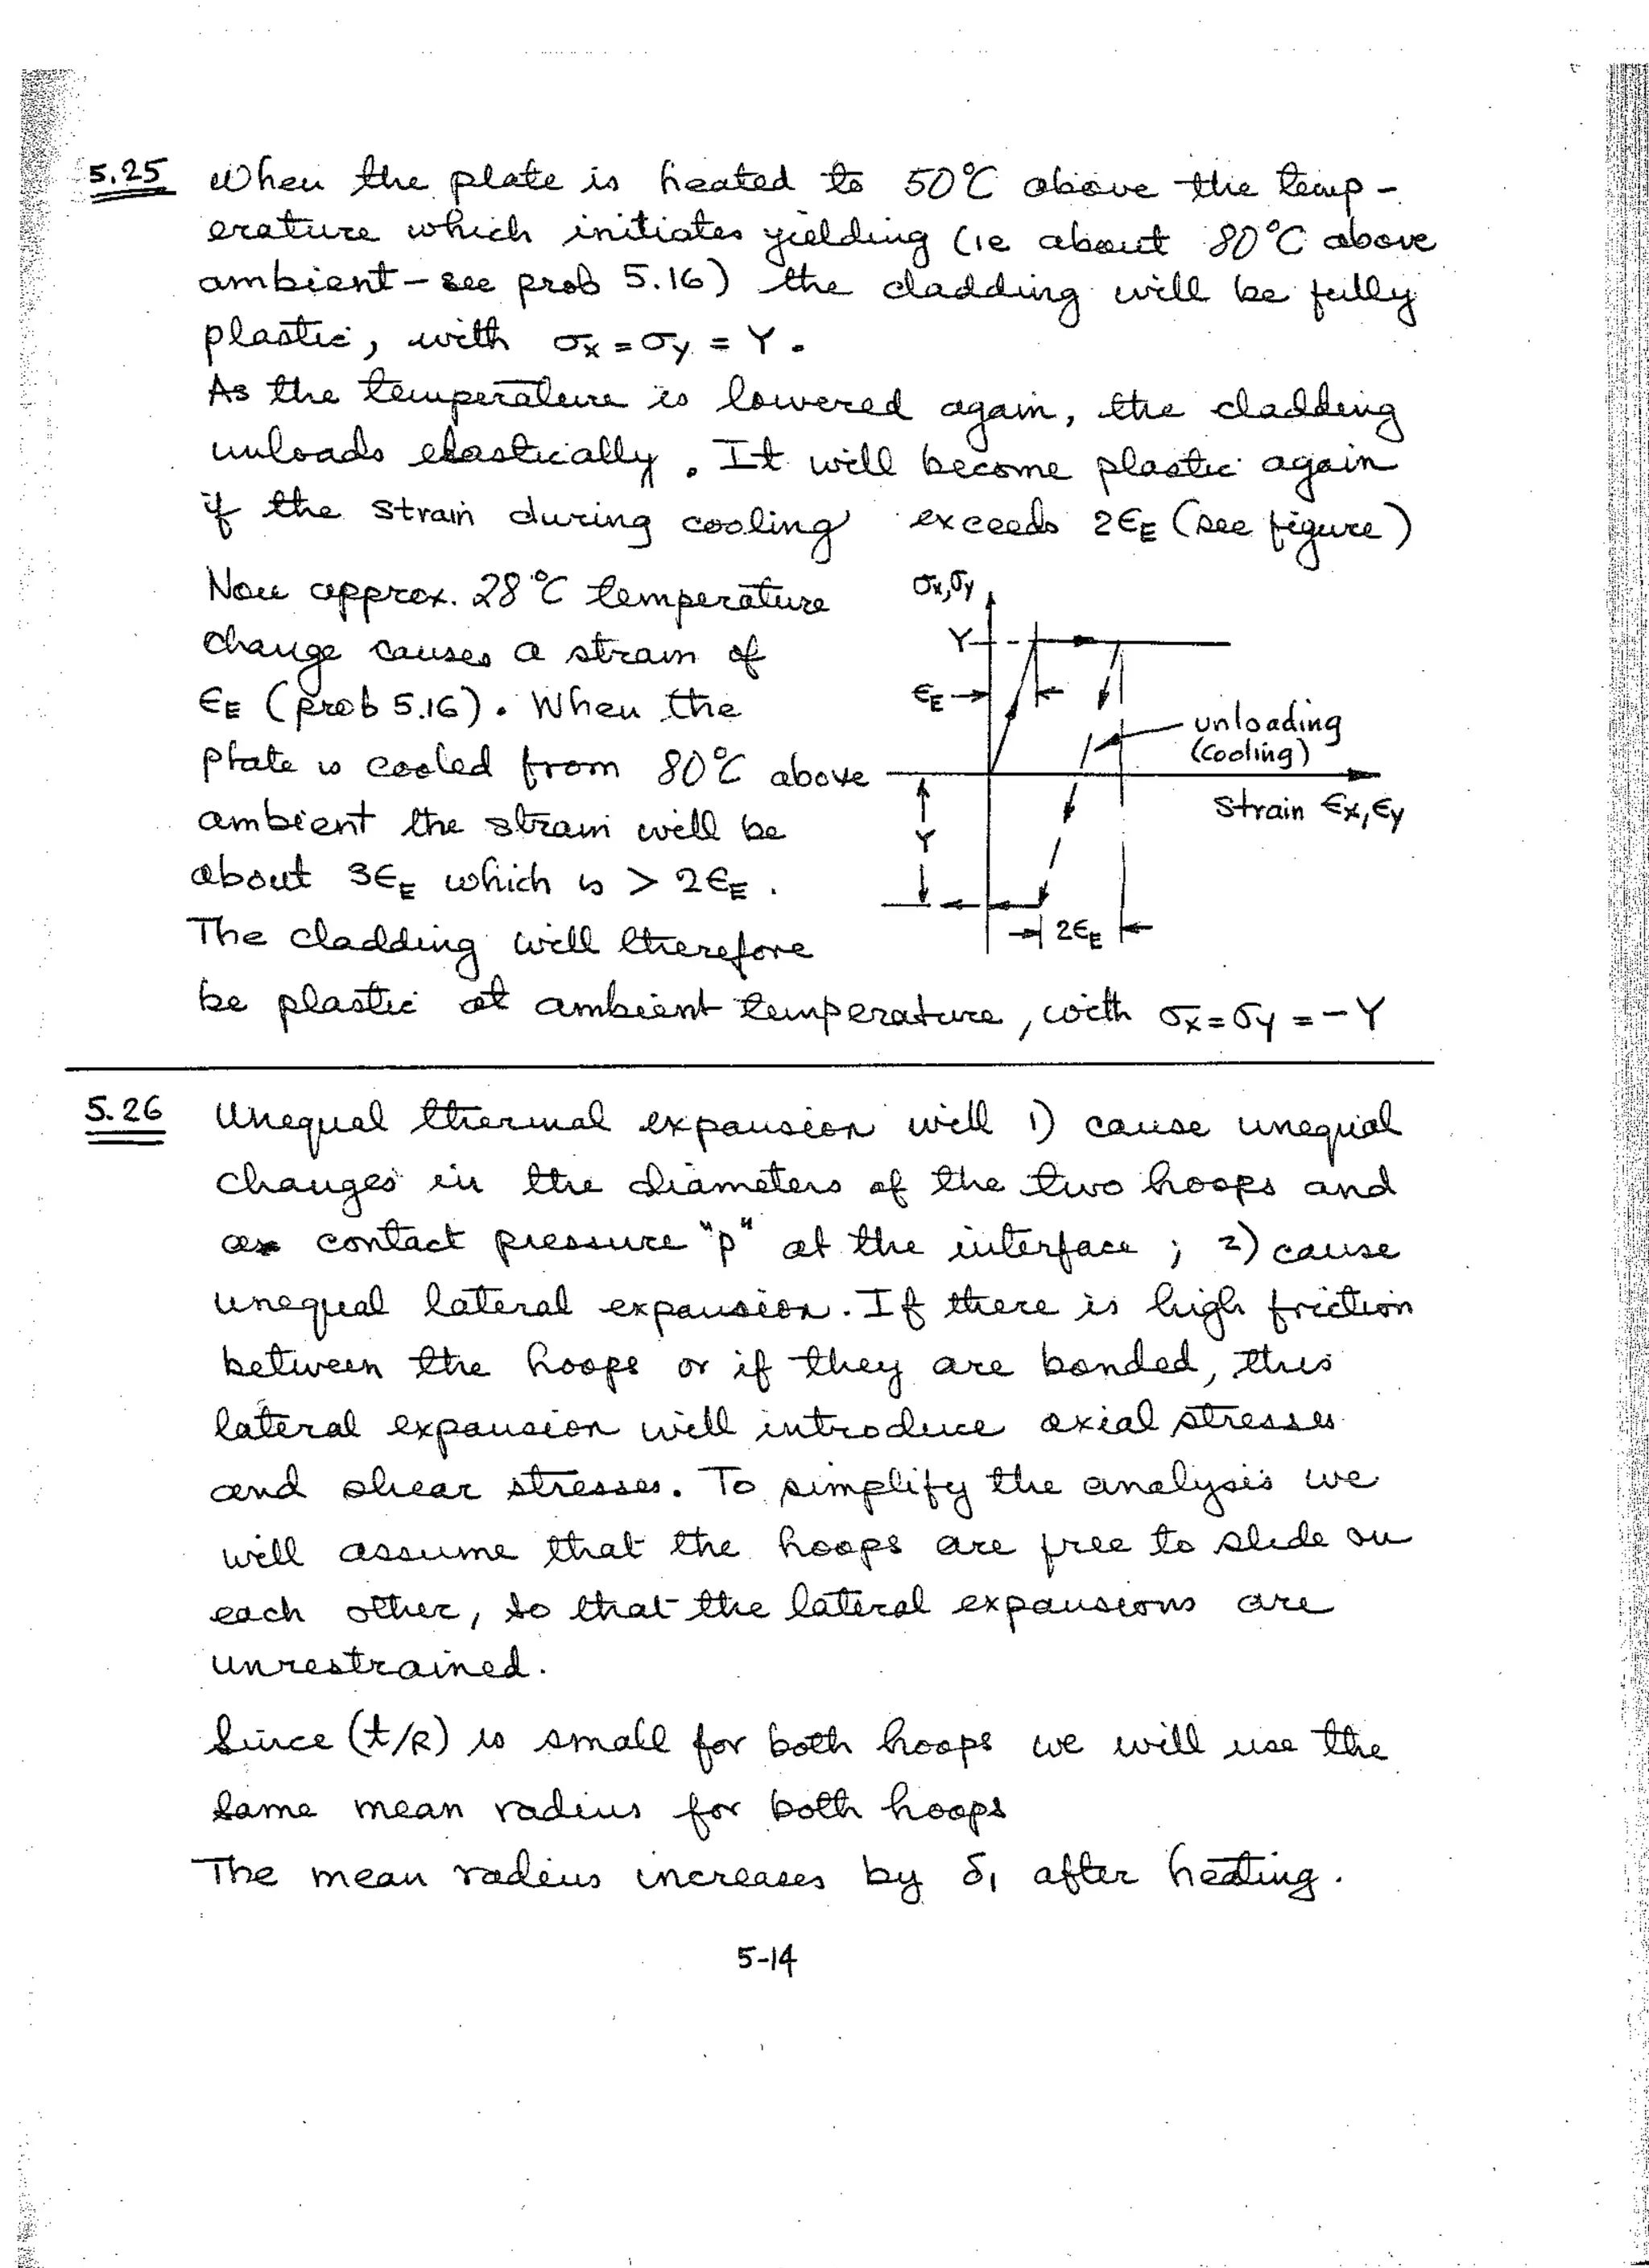 5.25 When the plate is heated to 50°C above the temp-
erature which initiates yielding (ie about 80°C above
ambient - see prob 5.16) the cladding will be fully
plastic, with σx = σy = Y.
As the temperature is lowered again, the cladding
unloads elastically. It will become plastic again
if the strain during cooling exceeds 2ϵE (see figure)
Now approx. 28°C temperature
change causes a strain of
ϵE (prob 5.16). When the
plate is cooled from 80°C above
ambient the strain will be
about 3ϵE which is > 2ϵE.
The cladding will therefore
be plastic at ambient temperature, with σx = σy = -Y
σx, σy
Y
ϵE
unloading
(cooling)
Strain ϵx, ϵy
Y
2ϵE
5.26 Unequal thermal expansion will 1) cause unequal
changes in the diameters of the two hoops and
a contact pressure "p" at the interface; 2) cause
unequal lateral expansion. If there is high friction
between the hoops or if they are bonded, this
lateral expansion will introduce axial stresses
and shear stresses. To simplify the analysis we
will assume that the hoops are free to slide on
each other, so that the lateral expansions are
unrestrained.
Since (t/R) is small for both hoops we will use the
same mean radius for both hoops
The mean radius increases by δ1 after heating.
5-14